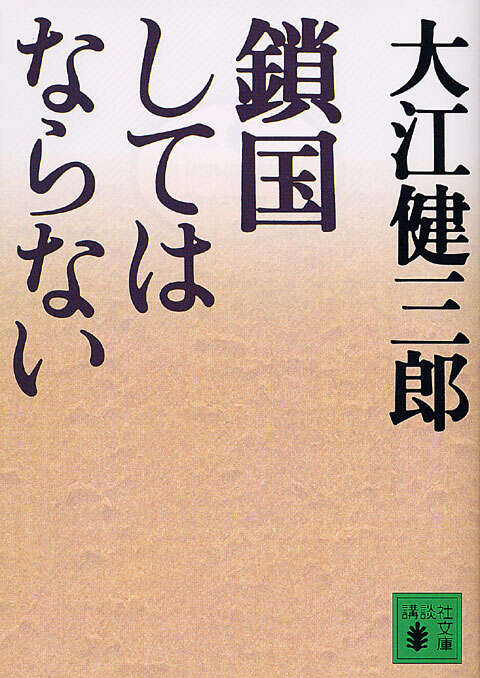 大江健三郎
鎖国
しては
ならない
講談社文庫